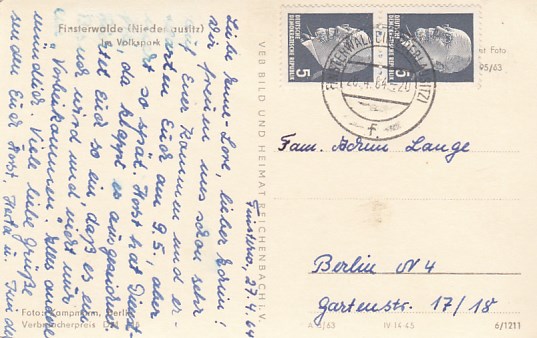 Finsterwalde (Niederlausitz)
Im Volkspark
VEB BILD UND HEIMAT REICHENBACH i. V.
Foto
95/63
DEUTSCHE
DEMOKRATISCHE REPUBLIK
5
DEUTSCHE
DEMOKRATISCHE REPUBLIK
5
FINSTERWALDE (NIEDERLAUSITZ)
.4.64.-20
f
Finsterw., 27.4.64
Liebe Anne-Lore, lieber Achim!
Wir freuen uns schon sehr
auf Euer Kommen und er
warten Euch am 9.5., aber
nicht so spät. Horst hat Dienst
da klappt es ausgezeichnet.
Richtet Euch so ein, daß es ein
wird und nicht nur
"Vorbeikommen". Alles andere
mündlich. Viele liebe Grüße
senden Euch Horst, Herta u.
Fam. Achim Lange
Berlin N 4
Gartenstr. 17/18
Foto: Kampmann, Berlin
Verbraucherpreis
A 5/63
IV-14-45
6/1211